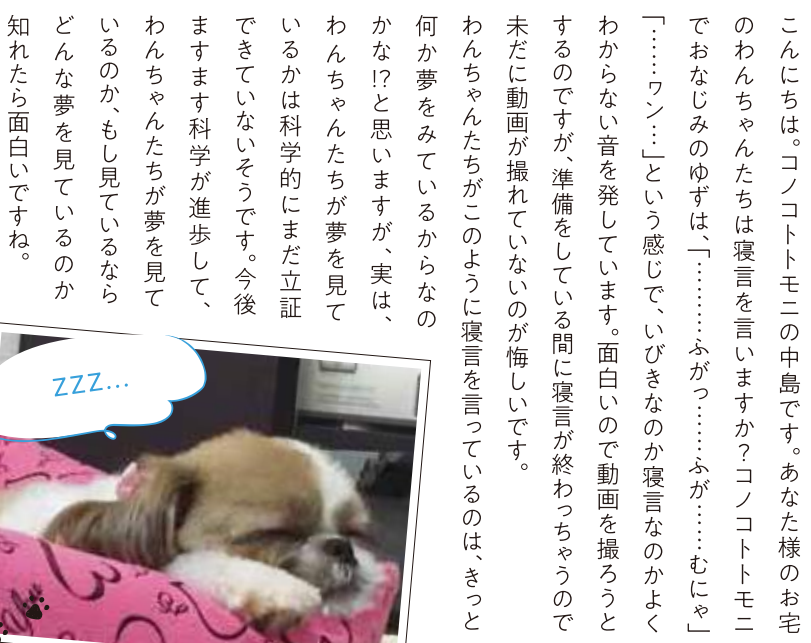 こんにちは。コノコトトモニの中島です。あなた様のお宅
のわんちゃんたちは寝言を言いますか？コノコトトモニ
でおなじみのゆずは、「………ふがっ……ふが……むにゃ」
「……ヮン…」という感じで、いびきなのか寝言なのかよく
わからない音を発しています。面白いので動画を撮ろうと
するのですが、準備をしている間に寝言が終わっちゃうので
未だに動画が撮れていないのが悔しいです。
わんちゃんたちがこのように寝言を言っているのは、きっと
何か夢をみているからなの
かな!?と思いますが、実は、
わんちゃんたちが夢を見て
いるかは科学的にまだ立証
できていないそうです。今後
ますます科学が進歩して、
わんちゃんたちが夢を見て
いるのか、もし見ているなら
どんな夢を見ているのか
知れたら面白いですね。
ZZZ...